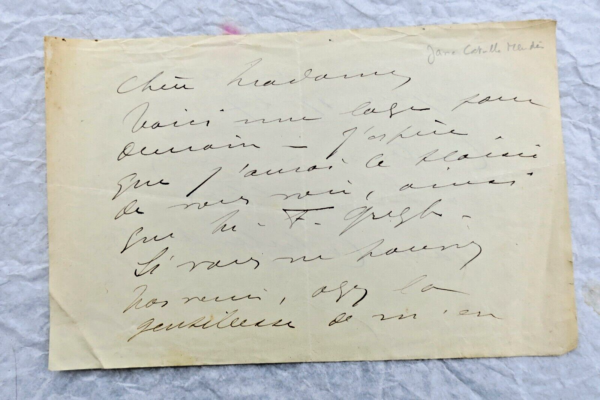 Jane Catulle Mendès
Chère Madame,
Voici une loge pour
demain – J'espère
que j'aurai le plaisir
de vous voir, ainsi
que M. F. Gregh.
Si vous ne pouviez
pas venir, ayez la
gentillesse de m'en